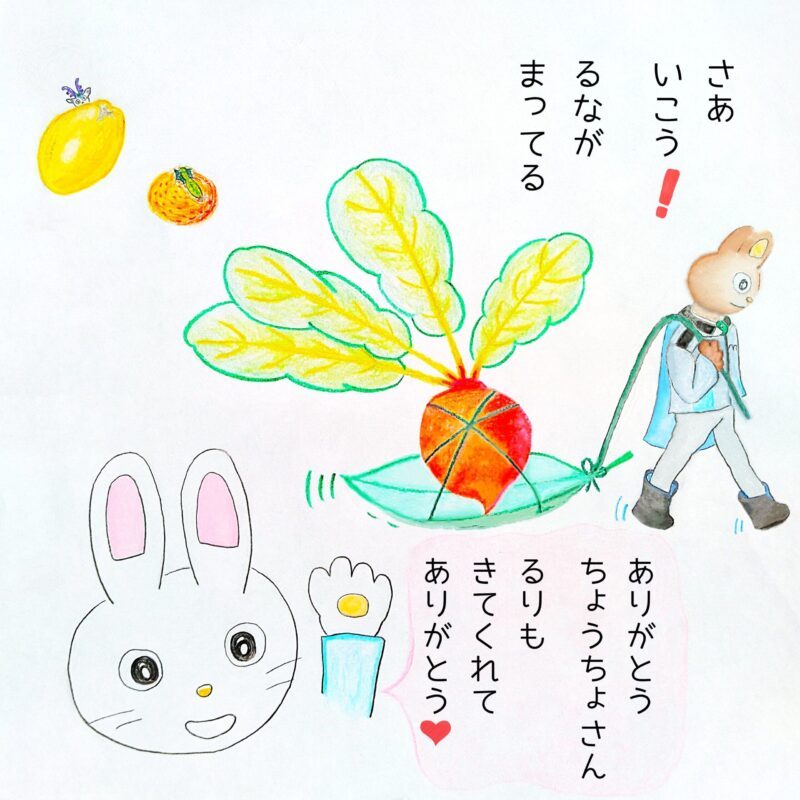 さあ
いこう❗
るなが
まってる
ありがとう
ちょうちょさん
るりも
きてくれて
ありがとう♥